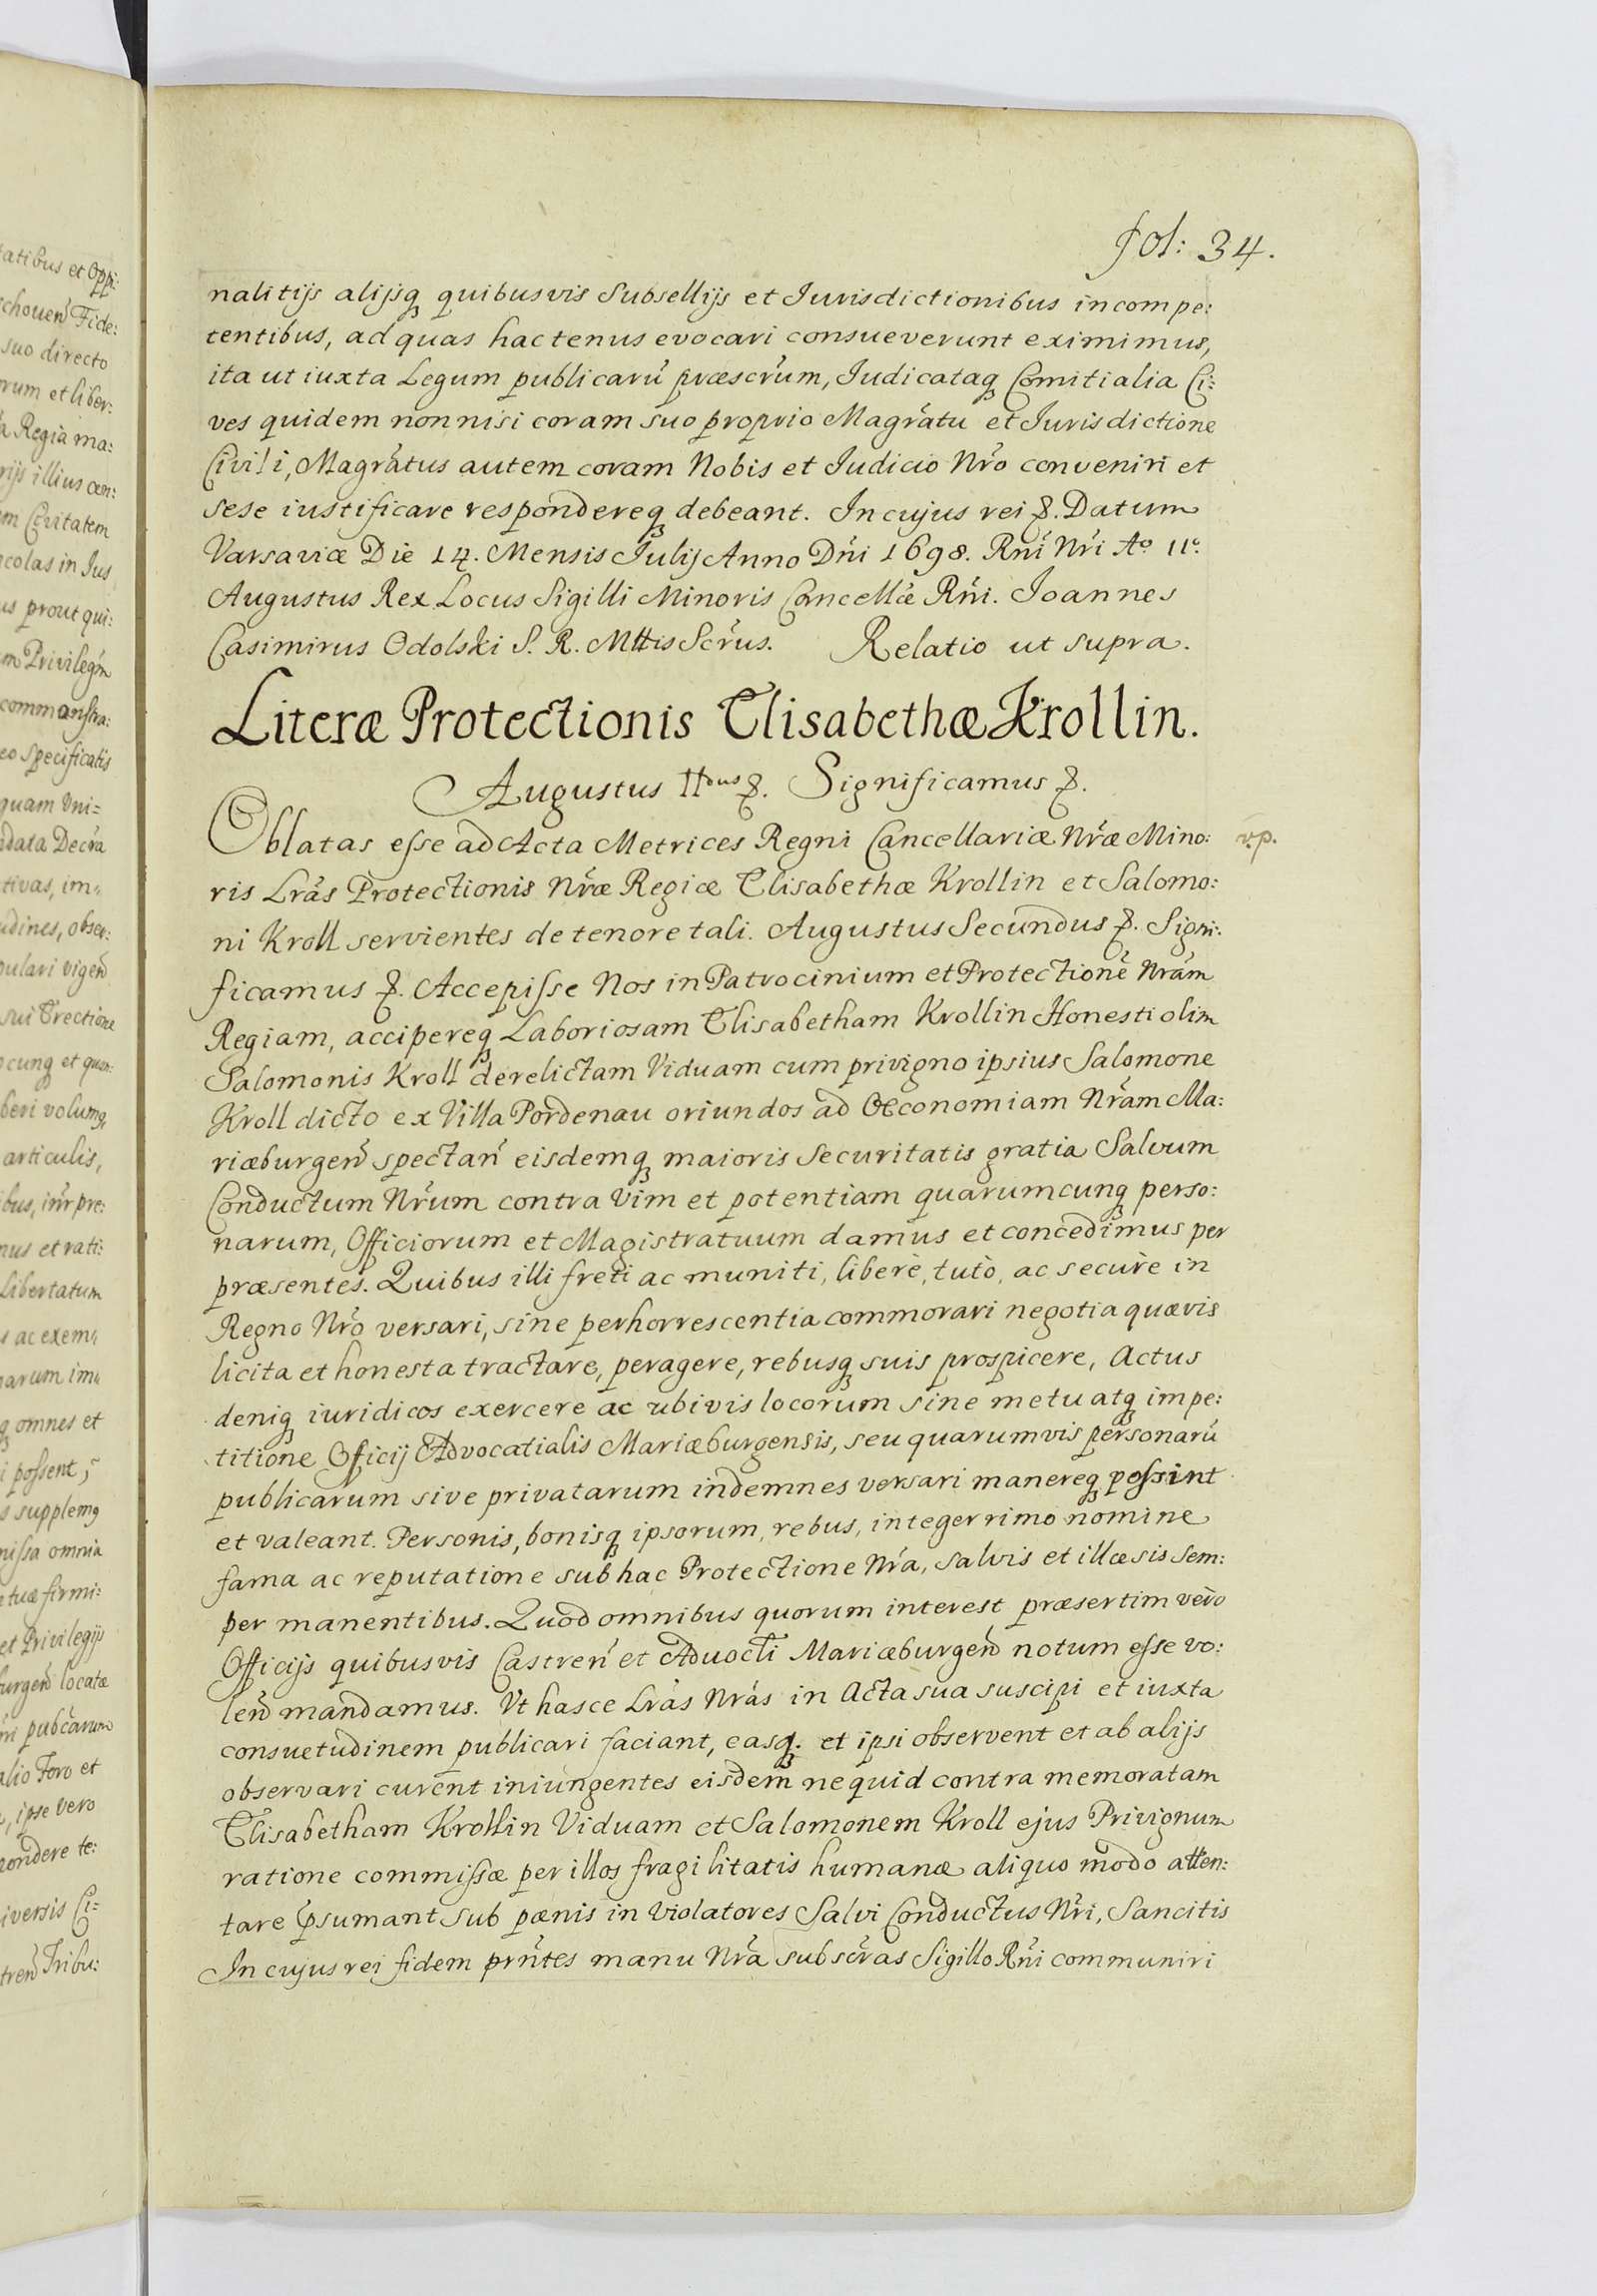 fol: 34.
nalitijs alijsq₃ quibusvis Subsellijs et Iurisdictionibus incompe:
tentibus, ad quas hactenus evocari consueverunt eximimus,
ita ut iuxta Legum publicarū præscr̃um, Iudicataq₃ Comitialia Ci:
ves quidem nonnisi coram suo proprio Magr̃atu et Iurisdictione
Civili, Magr̃atus autem coram Nobis et Iudicio Nr̃o conveniri et
sese iustificare respondereq₃ debeant. In cujus rei &. Datum
Varsaviæ Die 14. Mensis Iulij Anno Dńi 1698. Rńi Nr̃i Aº IIº.
Augustus Rex Locus Sigilli Minoris Cancellæ Rńi. Joannes
Casimirus Odolski S. R. Mttis Scr̃us. Relatio ut supra.
Literæ Protectionis Elisabethæ Krollin.
Augustus IIdus &. Significamus &.
Oblatas esse ad Acta Metrices Regni Cancellariæ Nr̃æ Mino:
v.p.
ris Lr̃as Protectionis Nr̃æ Regiæ Elisabethæ Krollin et Salomo:
ni Kroll servientes de tenore tali. Augustus Secundus &. Signi:
ficamus &. Accepisse Nos in Patrocinium et Protectionē Nr̃am
Regiam, accipereq₃ Laboriosam Elisabetham Krollin Honesti olim
Salomonis Kroll derelictam Viduam cum privigno ipsius Salomone
Kroll dicto ex Villa Pordenau oriundos ad Œconomiam Nr̃am Ma:
riæburgeñ spectañ eisdemq₃ maioris securitatis gratia Salvum
Conductum Nr̃um contra vim et potentiam quarumcunq₃ perso:
narum, Officiorum et Magistratuum damus et concedimus per
præsentes. Quibus illi freti ac muniti, liberè, tutò, ac securè in
Regno Nr̃o versari, sine perhorrescentia commorari negotia quævis
licita et honesta tractare, peragere, rebusq₃ suis prospicere, Actus
deniq₃ iuridicos exercere ac ubivis locorum sine metu atq₃ impe:
titione Officij Advocatialis Mariæburgensis, seu quarumvis personarū
publicarum sive privatarum indemnes versari manereq₃ possint
et valeant. Personis, bonisq₃ ipsorum, rebus, integerrimo nomine
fama ac reputatione sub hac Protectione Nr̃a, salvis et illæsis sem:
per manentibus. Quod omnibus quorum interest præsertim verò
Officijs quibusvis Castreñ et Aduocłi Mariæburgeñ notum esse vo:
leñ mandamus. Vt hasce Lr̃as Nr̃as in Acta sua suscipi et iuxta
consuetudinem publicari faciant, easq₃. et ipsi observent et ab alijs
observari curent iniungentes eisdem ne quid contra memoratam
Elisabetham Krollin Viduam et Salomonem Kroll ejus Privignum
ratione commissæ per illos fragilitatis humanæ aliquo modo atten:
tare p̃sumant sub pœnis in violatores Salvi Conductus Nr̃i, Sancitis
In cujus rei fidem prñtes manu Nr̃a subscr̃as Sigillo Rńi communiri